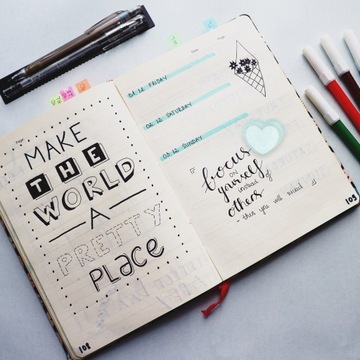 MAKE
THE
WORLD
A
PRETTY
PLACE
108
02.12 FRIDAY
03.12 SATURDAY
focus
on
yourself
instead of
others
then you will succeed